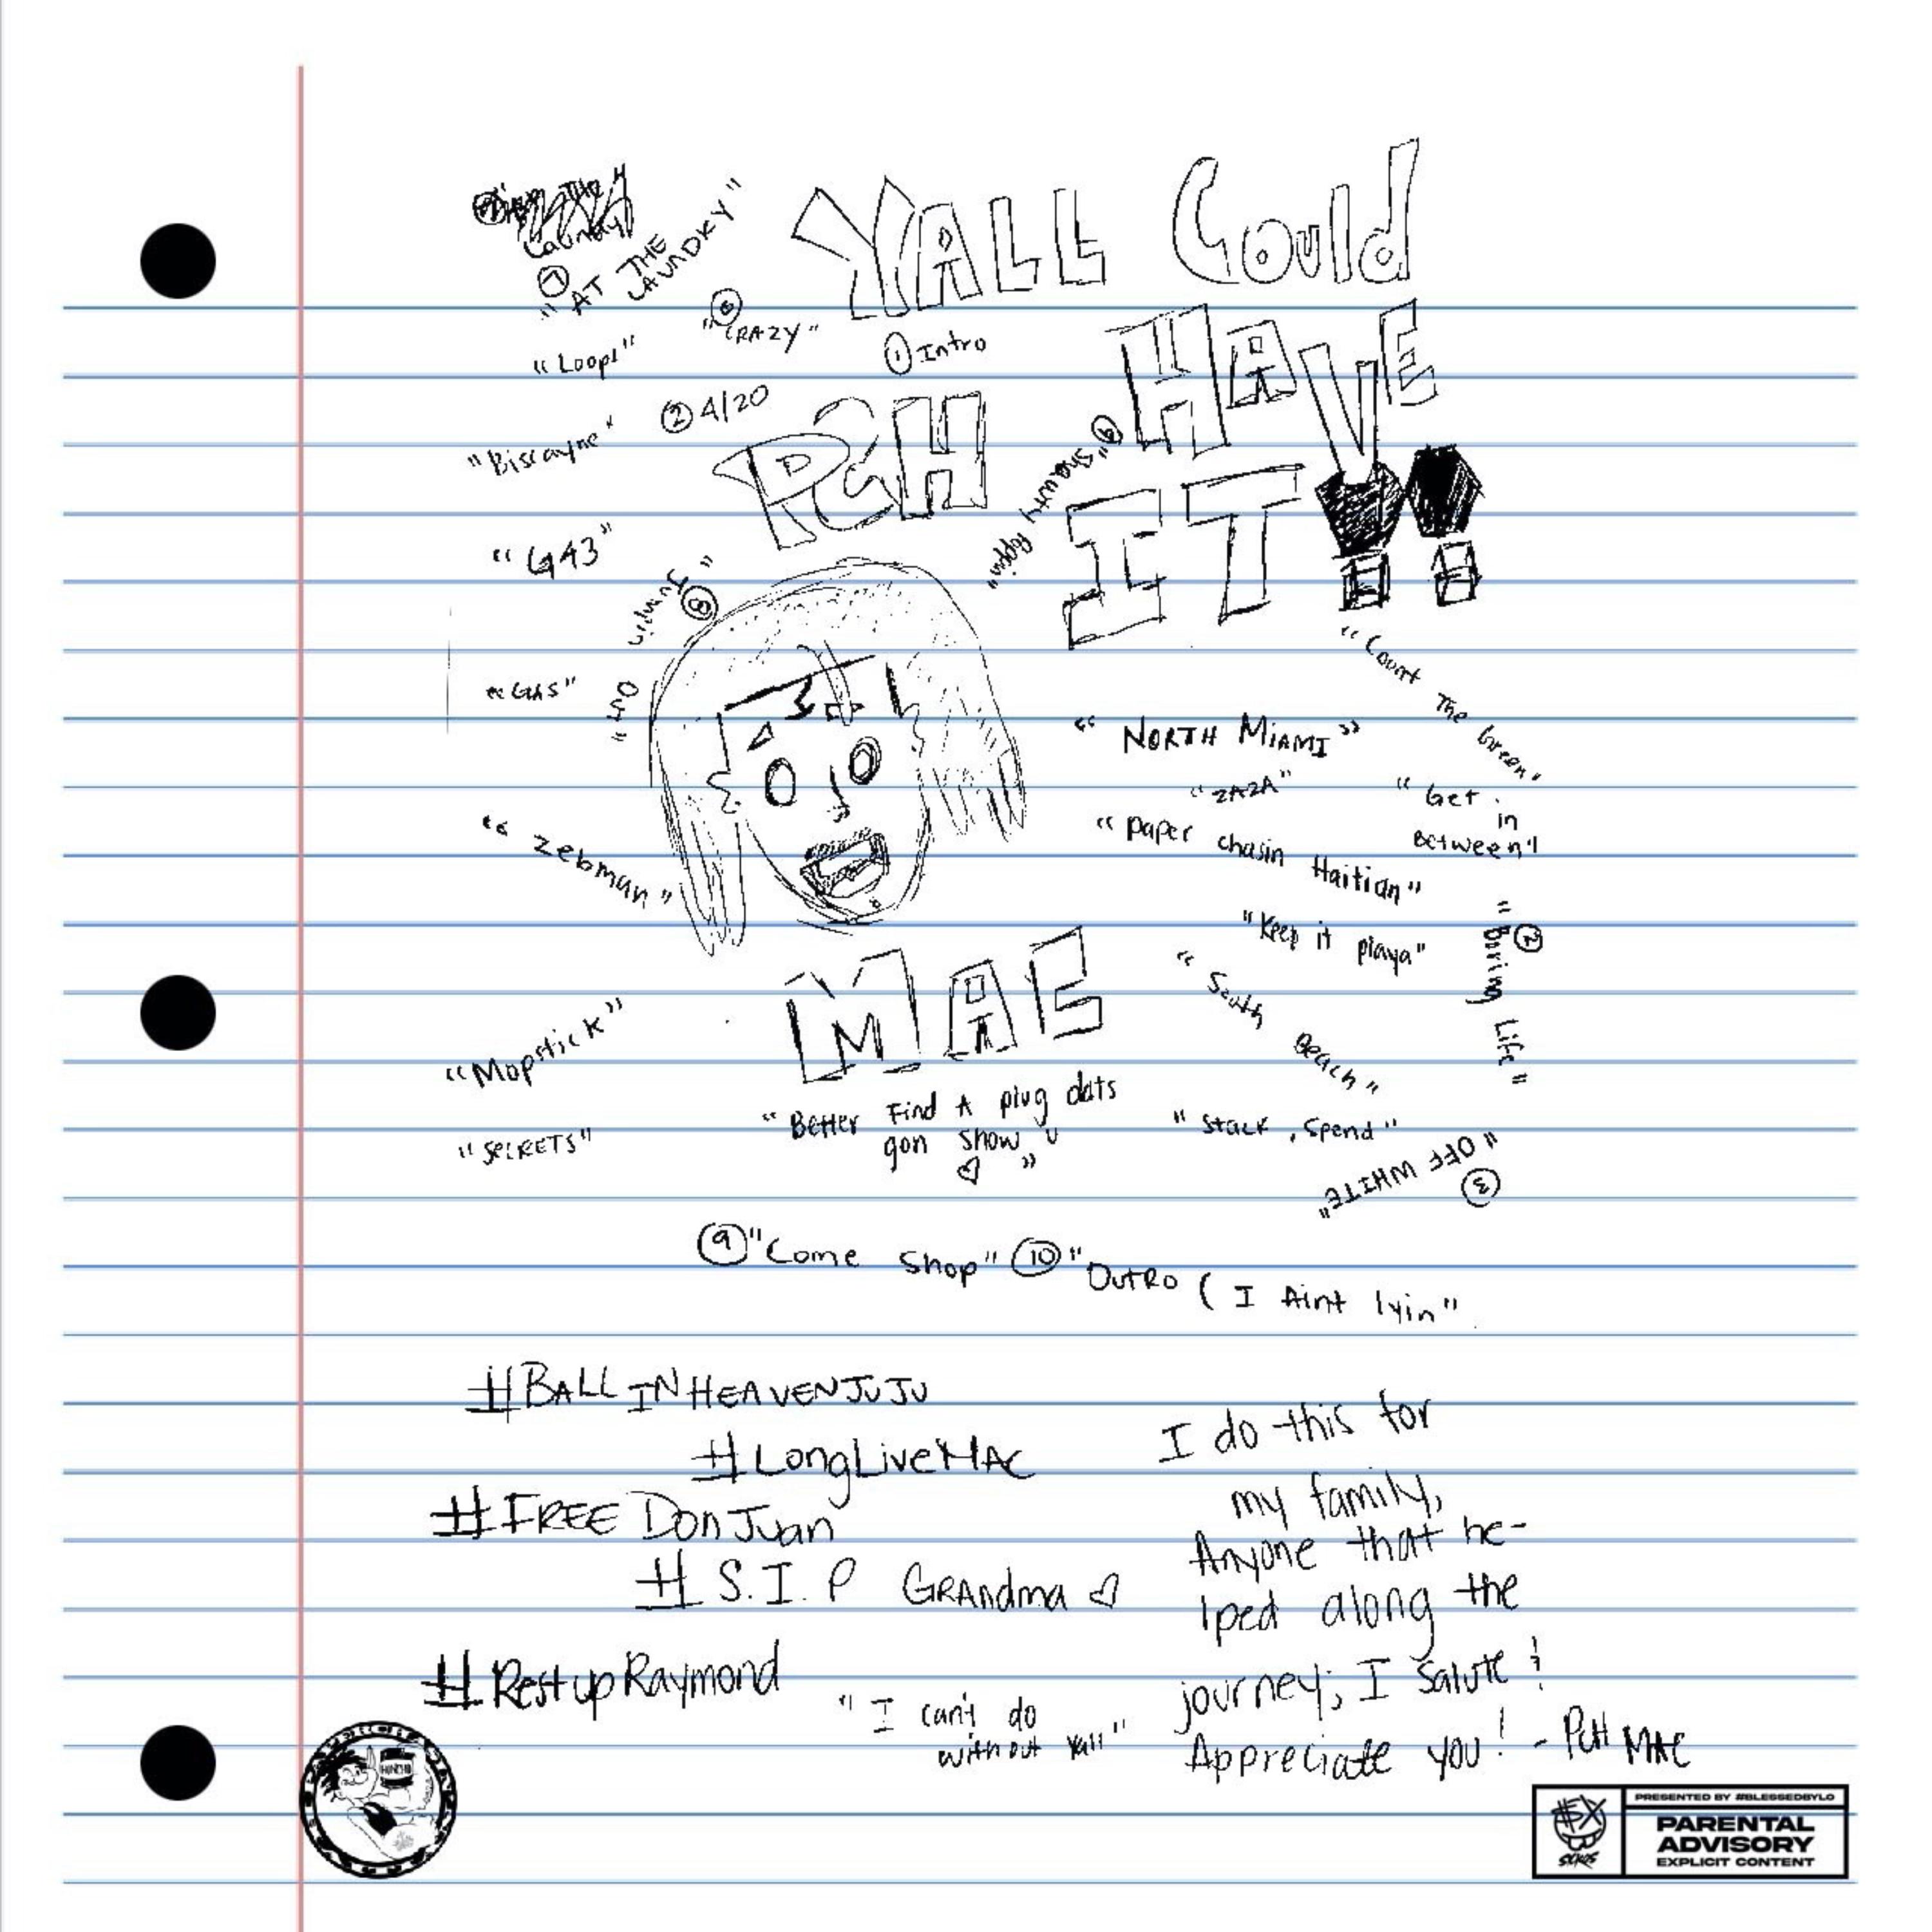 Laundry
7
"AT THE
LAUNDRY"
YALL Could
HAVE
IT!!
6
"CRAZY"
1 Intro
"Loops"
2 4/20
"Biscayne"
PCH
6 "Shawty Poppin"
"G43"
8
"Jumpin
Out"
"GAS"
"Count The Green"
"NORTH MIAMI"
"ZAZA"
"Get in
Between"
"Paper chasin Haitian"
"Zebman"
"Keep it playa"
2
"Boring Life"
MAE
"South Beach"
"Mopstick"
"Better Find A plug dats
gon show U"
"Stack, Spend"
"SECRETS"
"OFF WHITE"
3
9 "Come Shop" 10 "Outro ( I Aint lyin"
#BALLINHEAVENJUJU
#LongLiveMAC
#FREEDonJuan
#S.I.P GRAndma
#RestupRaymond
"I can't do
without Yall"
I do this for
my family,
Anyone that he-
lped along the
journey; I salute &
Appreciate you! - PCH MAE
HUNCHO
PRESENTED BY #BLESSEDBYLO
PARENTAL
ADVISORY
EXPLICIT CONTENT